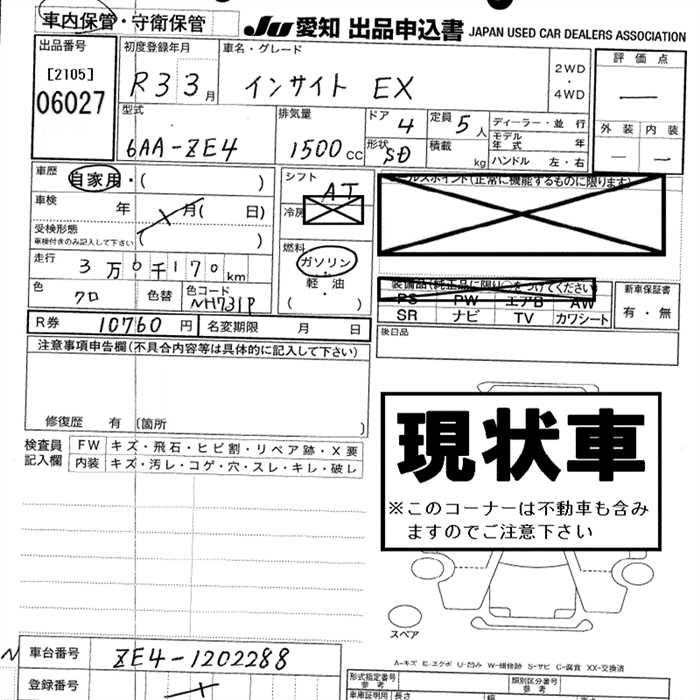 車内保管・守衛保管
JU 愛知 出品申込書 JAPAN USED CAR DEALERS ASSOCIATION
出品番号
[2105]
06027
初度登録年月
R3 3月
車名・グレード
インサイト EX
2WD
・
4WD
評価点
—
型式
6AA-ZE4
排気量
1500cc
ドア
4
定員
5人
形状
SD
積載
kg
ディーラー・並行
モデル年式 年
ハンドル 左・右
外装 内装
— —
車歴
自家用・( )
車検
年 月( 日)
受検形態
車検付きのみ記入して下さい
( )
シフト
AT
冷房
燃料
ガソリン・
軽油
( )
走行
3万0千170km
色
クロ
色替
色コード
NH731P
R券 10760円
名変期限 月 日
セールスポイント(正常に機能するものに限ります)
装備品(純正品に限り○をつけてください)
PS PW エアB AW
SR ナビ TV カワシート
新車保証書
有・無
後日品
注意事項申告欄(不具合内容等は具体的に記入して下さい)
修復歴 有 〔箇所
検査員
記入欄
FW キズ・飛石・ヒビ割・リペア跡・X要
内装 キズ・汚レ・コゲ・穴・スレ・キレ・破レ
現状車
※このコーナーは不動車も含み
ますのでご注意下さい
スペア
A-キズ E-エクボ U-凹み W-補修跡 S-サビ C-腐食 XX-交換済
車台番号
ZE4-1202288
登録番号
形式指定番号
参考
類別区分番号
参考
車庫証明用 長さ 幅 高さ